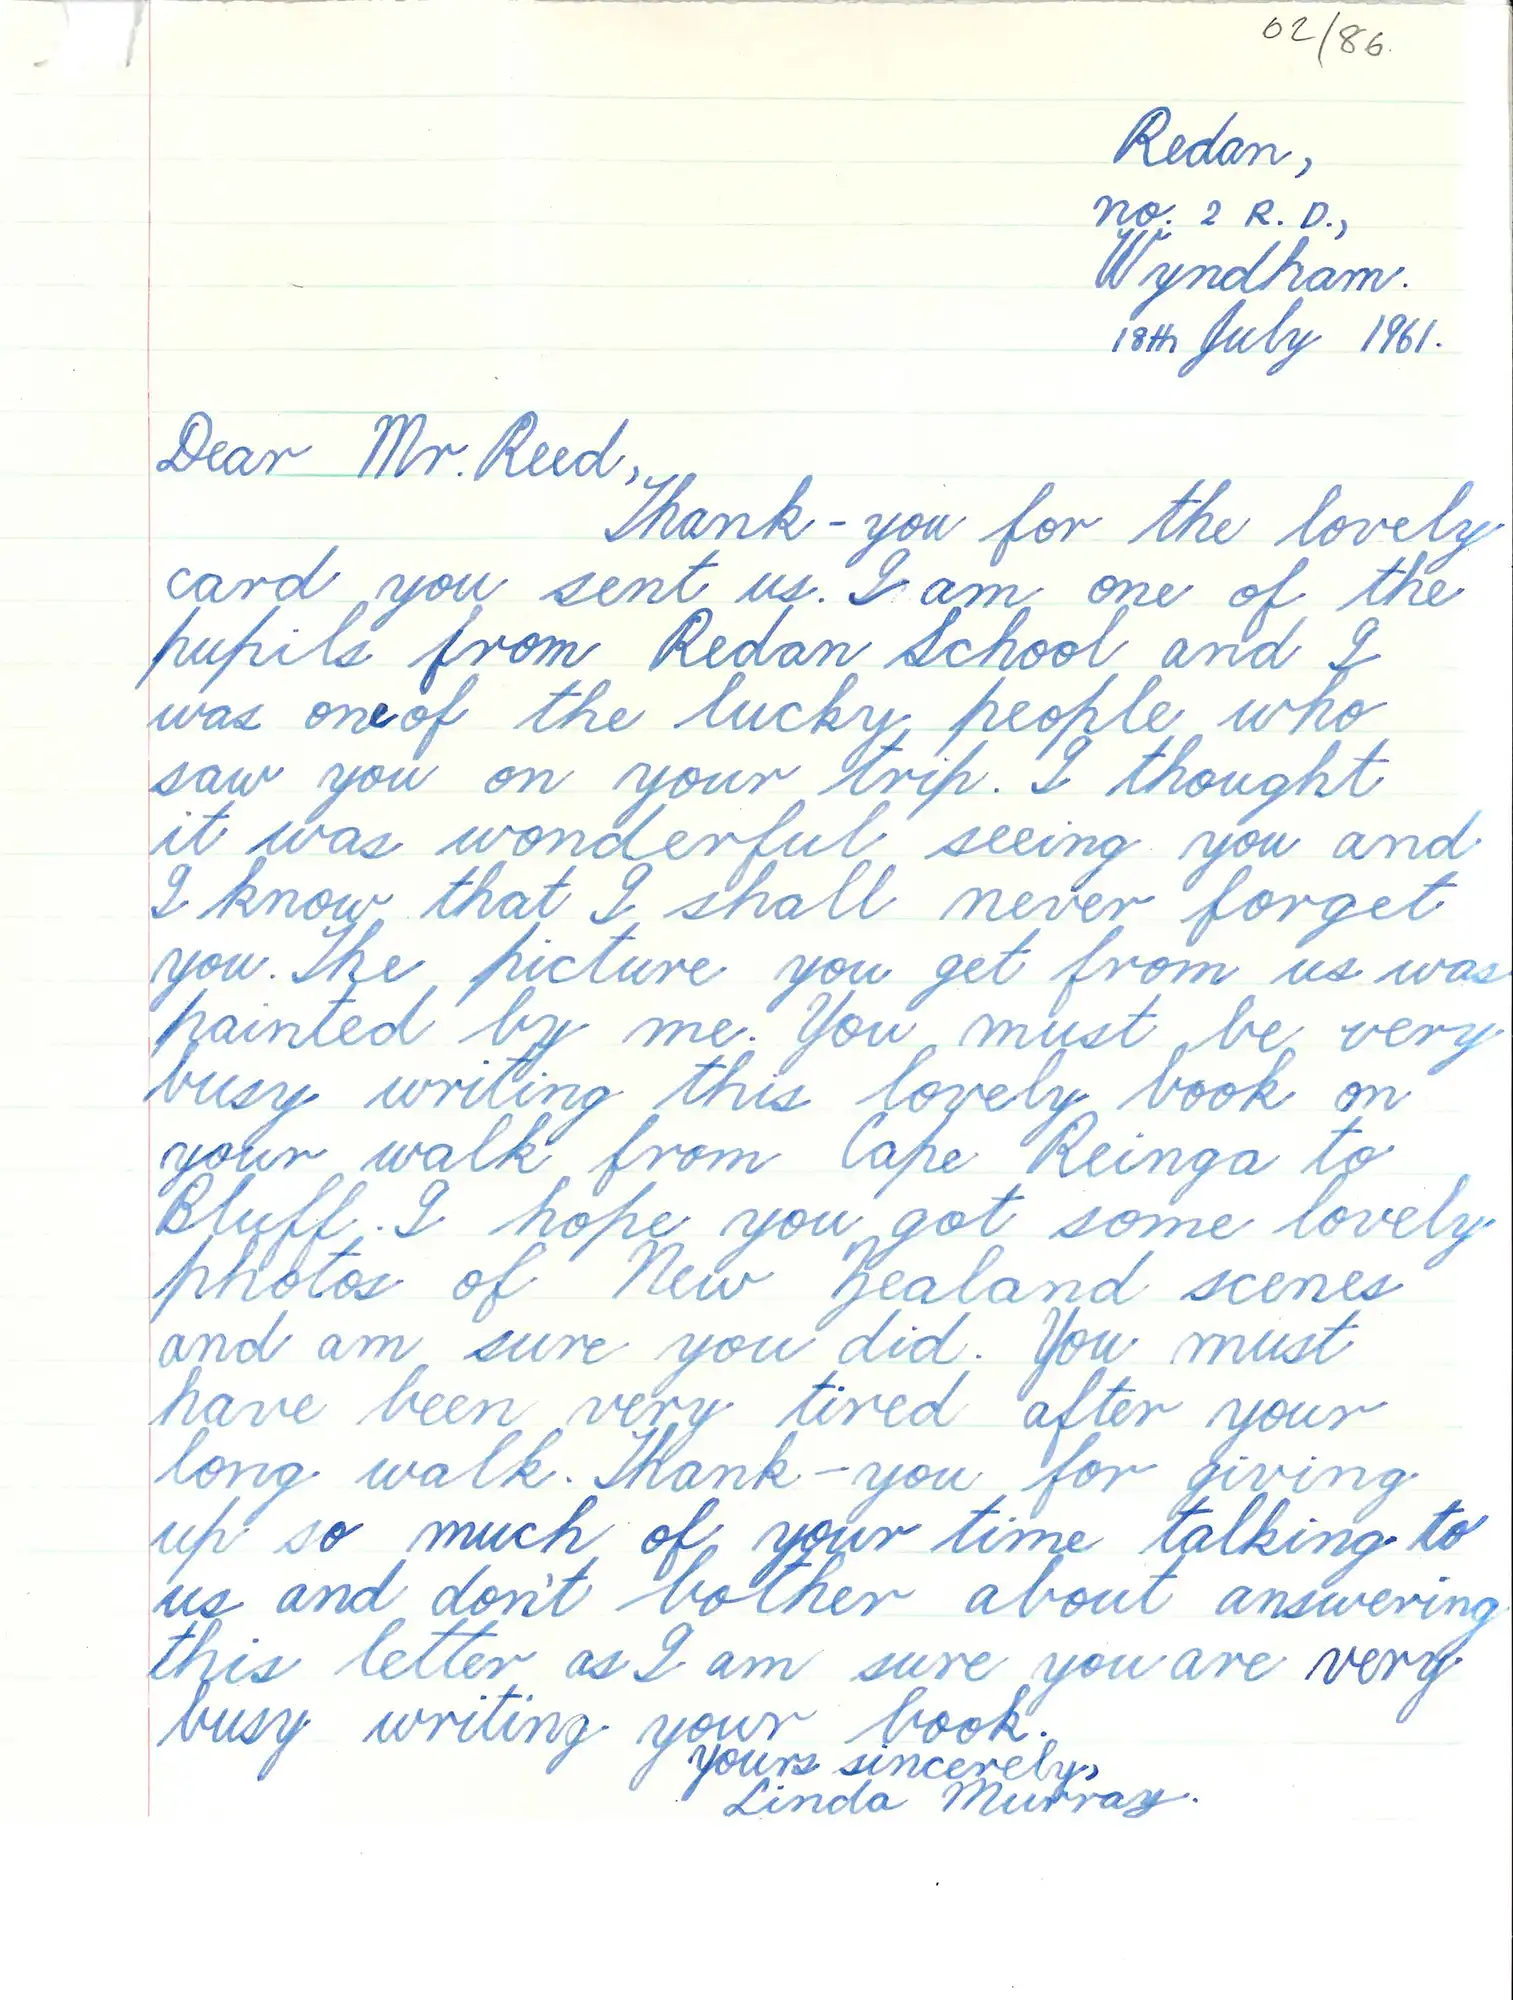 02/86.
Redan,
no. 2 R.D.,
Wyndham.
18th July 1961.
Dear Mr. Reed,
Thank-you for the lovely
card you sent us. I am one of the
pupils from Redan School and I
was one of the lucky people who
saw you on your trip. I thought
it was wonderful seeing you and
I know that I shall never forget
you. The picture you get from us was
painted by me. You must be very
busy writing this lovely book on
your walk from Cape Reinga to
Bluff. I hope you got some lovely
photos of New Zealand scenes
and am sure you did. You must
have been very tired after your
long walk. Thank-you for giving
up so much of your time talking to
us and don't bother about answering
this letter as I am sure you are very
busy writing your book.
yours sincerely,
Linda Murray.